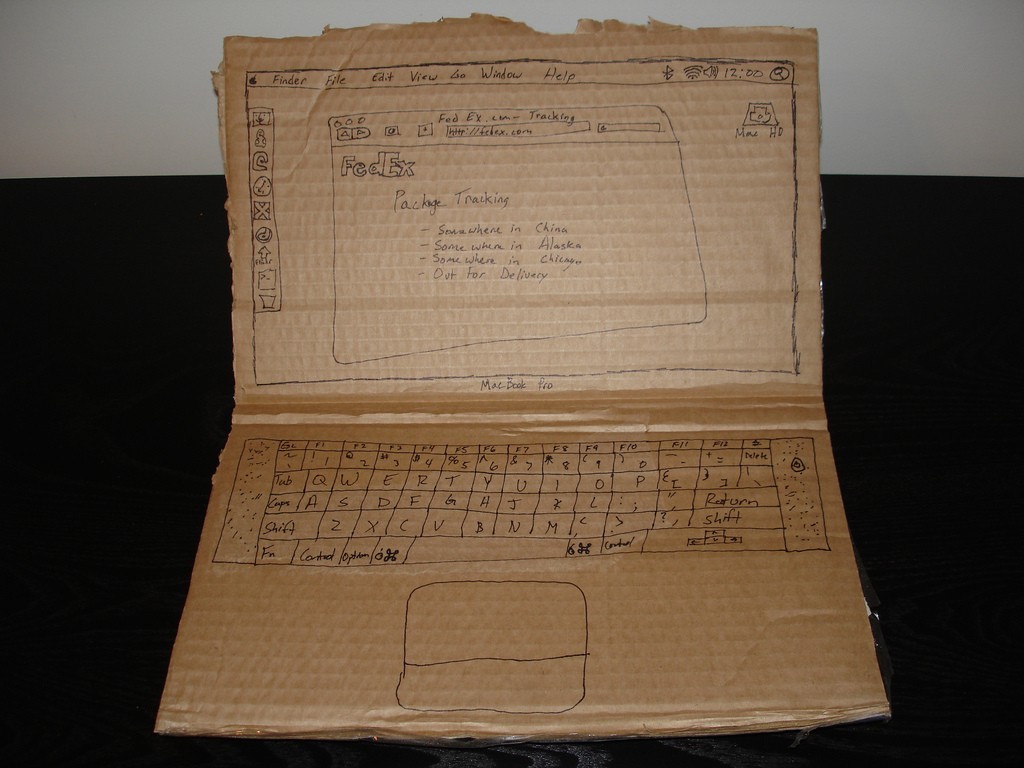 Finder File Edit View Go Window Help 12:00
Fed Ex.com - Tracking
http://fedex.com
Mac HD
FedEx
Package Tracking
- Somewhere in China
- Somewhere in Alaska
- Somewhere in Chicago
- Out For Delivery
MacBook Pro
Esc F1 F2 F3 F4 F5 F6 F7 F8 F9 F10 F11 F12
~ ` ! 1 @ 2 # 3 $ 4 % 5 ^ 6 & 7 * 8 ( 9 ) 0 - - + = Delete
Tab Q W E R T Y U I O P { [ } ] | \
Caps A S D F G H J K L : ; " , Return
Shift Z X C V B N M < , > . ? , Shift
Fn Control Option ⌘ ⌘ Control